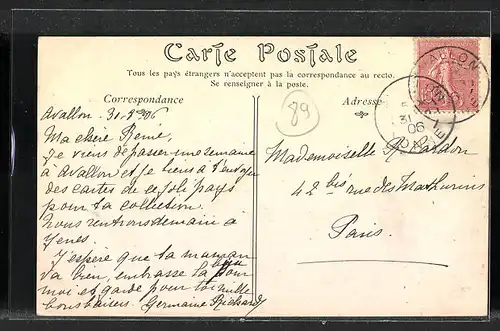 Carte Postale
Tous les pays étrangers n'acceptent pas la correspondance au recto.
Se renseigner à la poste.
Correspondance
Adresse
89
Avallon. 31.8.06
Ma chère Renée,
Je viens de passer une semaine
à Avallon et je tiens à t'envoyer
des cartes de ce joli pays
pour ta collection.
Nous rentrons demain à
J'espère que ta maman
va bien, embrasse la pour
moi et garde pour toi mille
bons baisers. Germaine Richard
Mademoiselle R.
42 bis rue des Mathurins
Paris.
AVALLON
31
06
YONNE